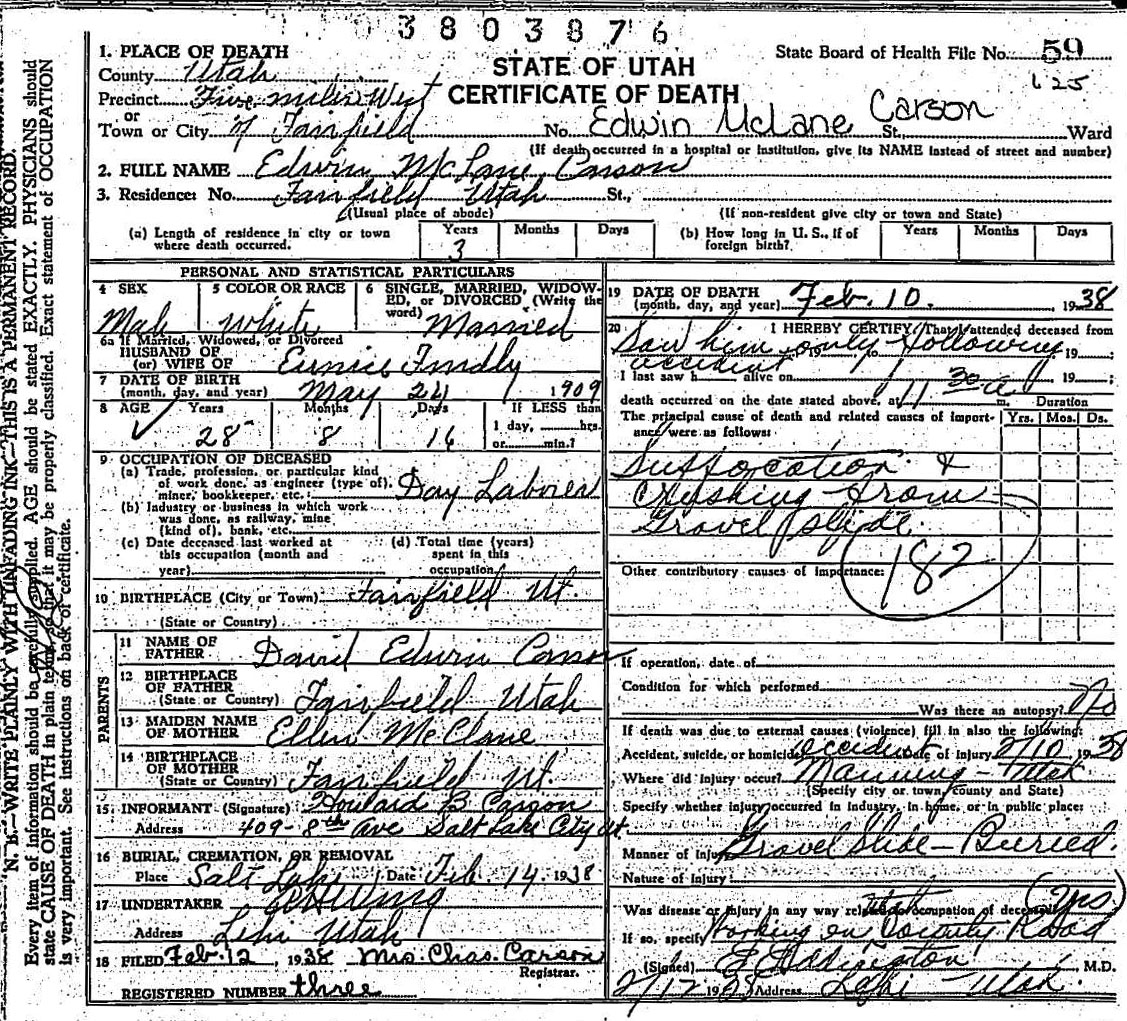 3803876
1. PLACE OF DEATH
County Utah
Precinct Five miles West
or
Town or City of Fairfield
STATE OF UTAH
CERTIFICATE OF DEATH
State Board of Health File No. 59
125
No. Edwin McLane Carson St. Ward
(If death occurred in a hospital or institution, give its NAME instead of street and number)
2. FULL NAME Edwin McLane Carson
3. Residence: No. Fairfield Utah St.,
(Usual place of abode) (If non-resident give city or town and State)
(a) Length of residence in city or town where death occurred. Years 3 Months Days
(b) How long in U. S., if of foreign birth? Years Months Days
PERSONAL AND STATISTICAL PARTICULARS
4 SEX Male
5 COLOR OR RACE White
6 SINGLE, MARRIED, WIDOWED, or DIVORCED (Write the word) Married
6a If Married, Widowed, or Divorced
HUSBAND OF
(or) WIFE OF Eunice
7 DATE OF BIRTH
(month, day, and year) May 24 1909
8 AGE Years 28 Months 8 Days 16 If LESS than 1 day, hrs. or min.?
9 OCCUPATION OF DECEASED
(a) Trade, profession, or particular kind of work done, as engineer (type of), miner, bookkeeper, etc.: Day Laborer
(b) Industry or business in which work was done, as railway, mine (kind of), bank, etc.
(c) Date deceased last worked at this occupation (month and year)
(d) Total time (years) spent in this occupation
10 BIRTHPLACE (City or Town) Fairfield Ut.
(State or Country)
PARENTS
11 NAME OF FATHER David Edwin Carson
12 BIRTHPLACE OF FATHER
(State or Country) Fairfield Utah
13 MAIDEN NAME OF MOTHER Ellen McClane
14 BIRTHPLACE OF MOTHER
(State or Country) Fairfield Ut.
15 INFORMANT (Signature) Howard B Carson
Address 409-8th Ave Salt Lake City Ut.
16 BURIAL, CREMATION, OR REMOVAL
Place Salt Lake Date Feb. 14 1938
17 UNDERTAKER A H Wing
Address Lehi Utah
18 FILED Feb. 12, 1938 Mrs. Chas. Carson
Registrar.
REGISTERED NUMBER three
19 DATE OF DEATH
(month, day, and year) Feb. 10. 1938
20 I HEREBY CERTIFY, That I attended deceased from
Saw him only following
accident 19 to 19 ;
I last saw h alive on , 19 ;
death occurred on the date stated above, at 11 30 a m. Duration
The principal cause of death and related causes of importance were as follows: Yrs. Mos. Ds.
Sufforcation &
Crushing from
Gravel Slide.
182
Other contributory causes of importance:
If operation, date of
Condition for which performed
Was there an autopsy? No
If death was due to external causes (violence) fill in also the following:
Accident, suicide, or homicide accident Date of injury 2/10 1938
Where did injury occur? Manning - Utah
(Specify city or town, county and State)
Specify whether injury occurred in industry, in home, or in public place:
Manner of injury Gravel Slide - Buried.
Nature of injury
Was disease or injury in any way related to occupation of deceased (yes)
If so, specify Working on County Road
(Signed) F Eddington, M.D.
2/12 1938 Address Lehi - Utah.
N. B.—WRITE PLAINLY WITH UNFADING INK—THIS IS A PERMANENT RECORD.
Every item of information should be carefully supplied. AGE should be stated EXACTLY. PHYSICIANS should
state CAUSE OF DEATH in plain terms, so that it may be properly classified. Exact statement of OCCUPATION
is very important. See instructions on back of certificate.